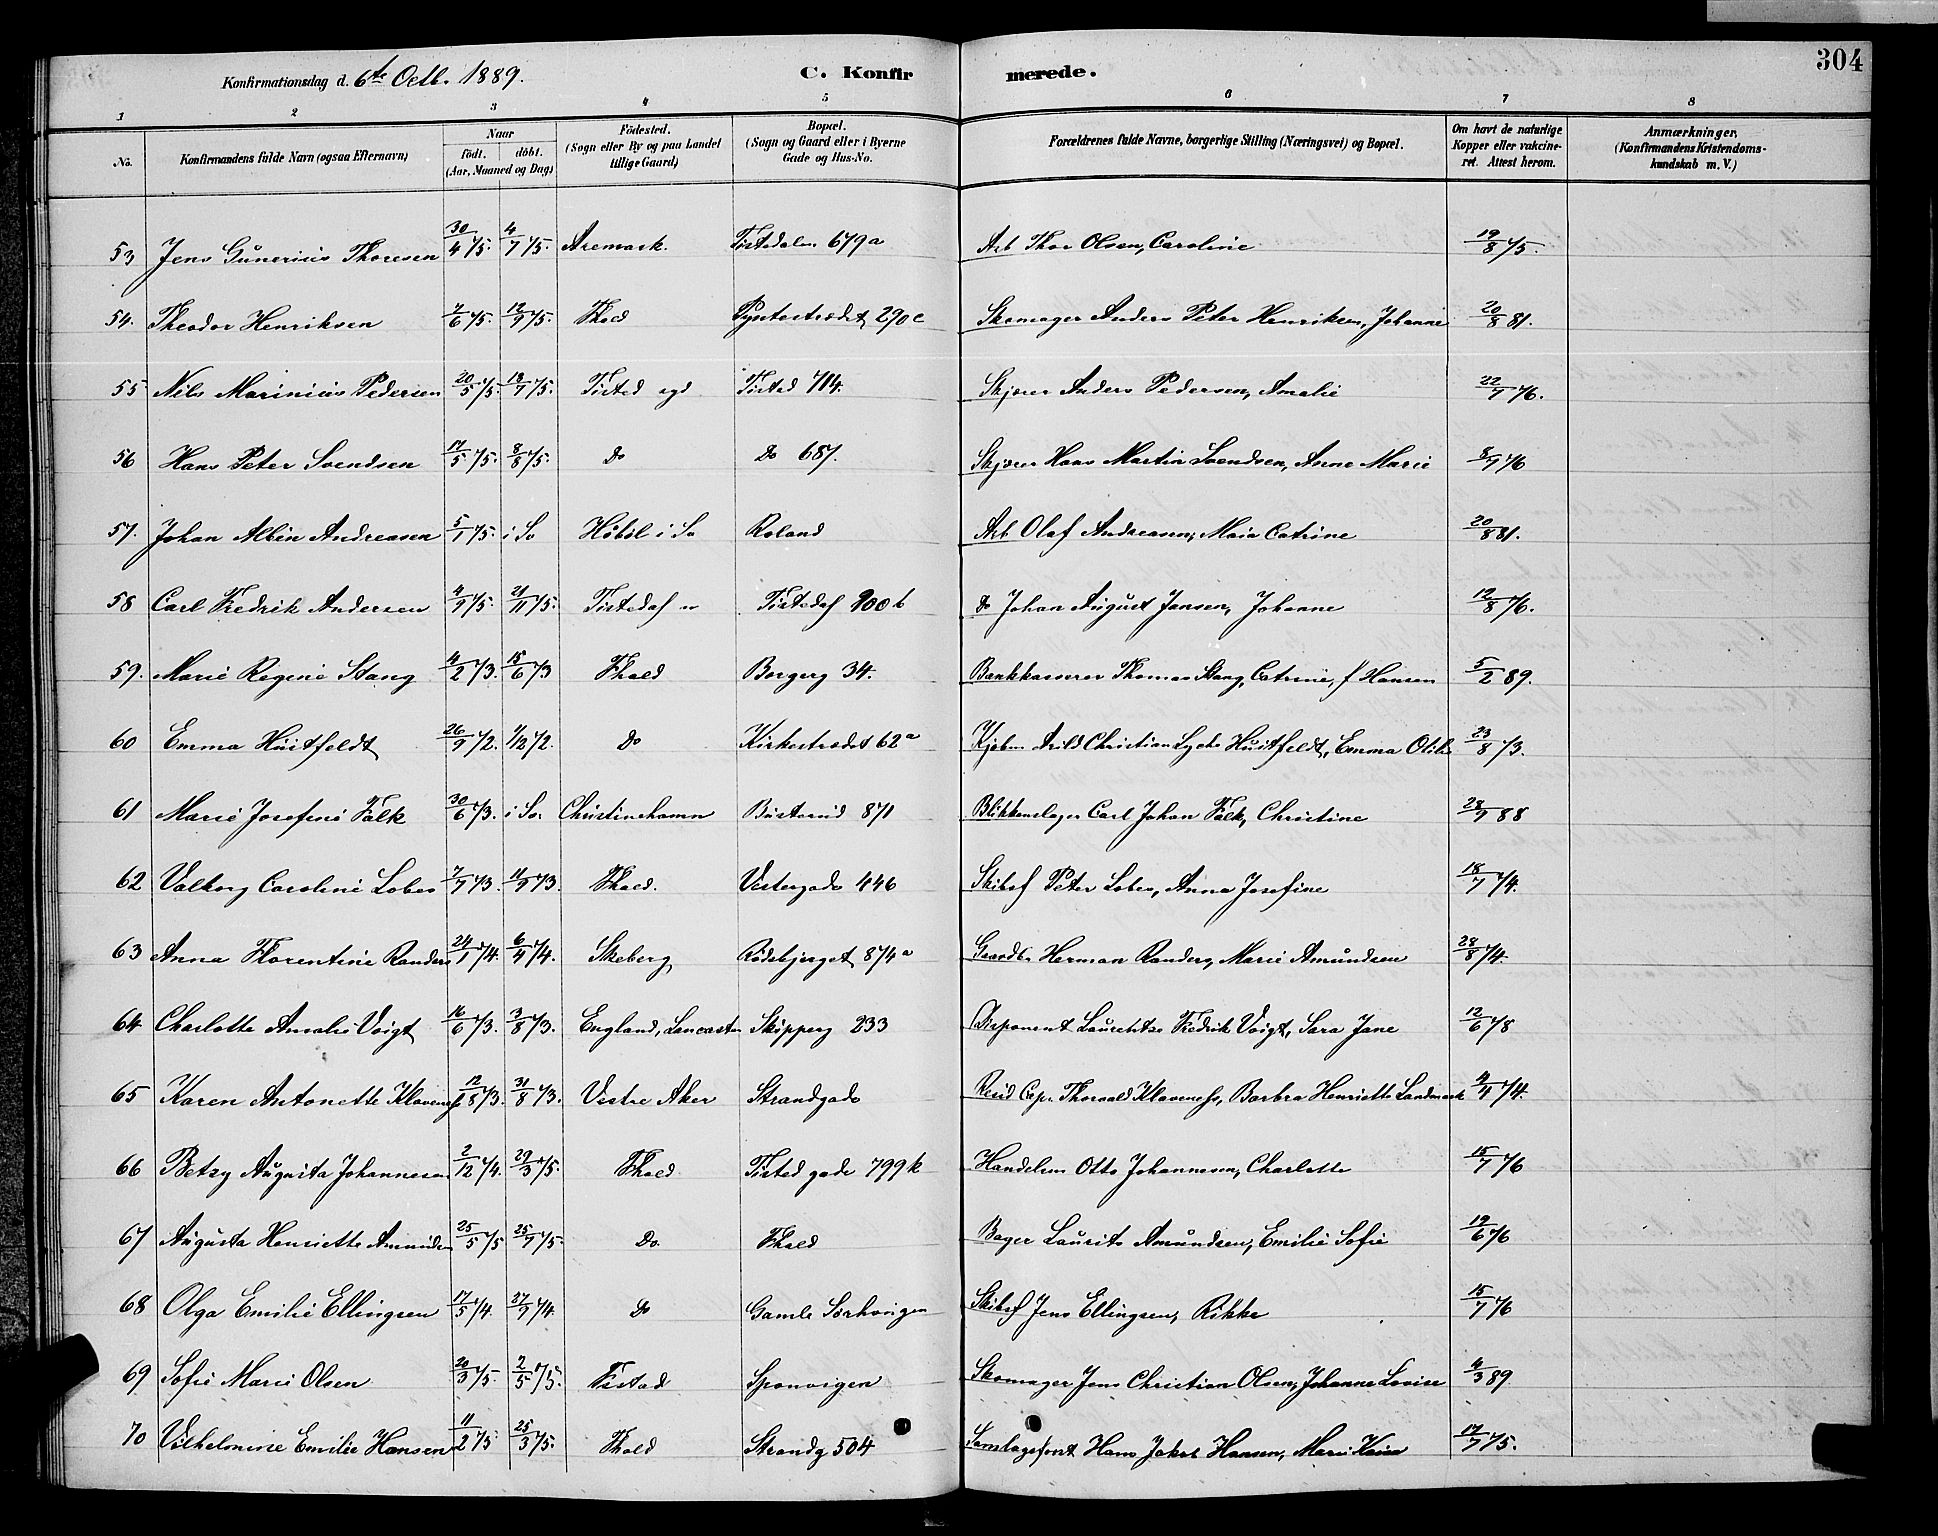 304
Konfirmationsdag d. 6te Octb. 1889. C. Konfirmerede.
1 2 3 4 5 6 7 8
No. Konfirmandens fulde Navn (ogsaa Efternavn) Naar födt. döbt. (Aar, Maaned og Dag) Födested. (Sogn eller By og paa Landet tillige Gaard) Bopæl. (Sogn og Gaard eller i Byerne Gade og Hus-No. Forældrenes fulde Navne, borgerlige Stilling (Næringsvei) og Bopæl. Om havt de naturlige Kopper eller vakcineret. Attest herom. Anmærkninger. (Konfirmandens Kristendomskundskab m. V.)
53 Jens Gunerius Thoresen 30/4 75. 4/7 75. Aremark. Tistedalen 679a Arb Thor Olsen, Caroline 19/8 75.
54. Theodor Henriksen 7/6 75. 12/9 75. Fhald Pyntestrædet 290c Skomager Anders Peter Henriksen, Johanne 20/8 81.
55 Nils Marinius Pedersen 20/5 75. 18/7 75. Tisted Tisted 714. Skjærer Anders Pedersen, Amalie 22/7 76.
56 Hans Peter Svendsen 17/5 75. 8/8 75. Do Do 687. Skjærer Hans Martin Svendsen, Anne Marie 8/7 76
57. Johan Albin Andreasen 5/1 75. i So Höböl i So Roland Arb Olaf Andreasen, Maia Catrine 20/8 81.
58 Carl Fredrik Andersen 4/9 75. 21/11 75. Tistedal Tistedal 900b Do Johan August Jansen, Johanne 12/8 76.
59. Marie Regine Stang 4/2 73. 15/6 73 Fhald Borgerg 34. Bankkasserer Thomas Stang, Catrine, f Hansen 5/2 89.
60 Emma Huitfeldt 26/9 72. 1/12 72. Do Kirkestrædet 62a Kjöbm Arild Christian Lyche Huitfeldt, Emma Otilie 23/8 73.
61 Marie Josefine Falk 30/6 73. i So. Christinehamn Busterud 871 Blikkenslager Carl Johan Falk, Christine 28/9 88
62 Valborg Caroline Lobes 7/7 73. 11/9 73. Fhald. Vestergade 446 Skibsf Peter Lobes, Anna Josefine 18/7 74.
63 Anna Florentine Randers 24/1 74. 6/4 74. Skeberg Rödsbjerget 874a Gaardbr Herman Randers, Marie Amundsen 28/8 74.
64 Charlotte Amalie Voigt 16/6 73. 3/8 73. England, Lancaster Skipperg 233 Disponent Laurentze Fredrik Voigt, Sara Jane 12/6 78
65 Karen Antonette Klaveness 12/8 73. 31/8 73. Vestre Aker Strandgade Resid Cap. Thorvald Klaveness, Barbra Henriette Landmark 4/4 74.
66 Betzy Augusta Johannesen 2/12 74. 29/3 75. Fhald Tisted gade 799k Handelsm Otto Johannesen, Charlotte 15/7 76
67 Augusta Henriette Amundsen 25/5 75 25/7 75. Do. Fhald Bager Laurits Amundsen, Emilie Sofie 19/6 76
68 Olga Emilie Ellingsen 17/5 74. 27/9 74. Do Gamle Sörhavigen Skibsf Jens Ellingsen, Rikke 15/7 76
69 Sofie Marie Olsen 20/3 75. 2/5 75. Tistad Sponvigen Skomager Jens Christian Olsen, Johanne Lovise 4/3 89
70 Vilhelmine Emilie Hansen 11/2 75 25/3 75. Fhald Strandg 504 Hans Jakob Hansen, Marie Kaisa 17/7 75.